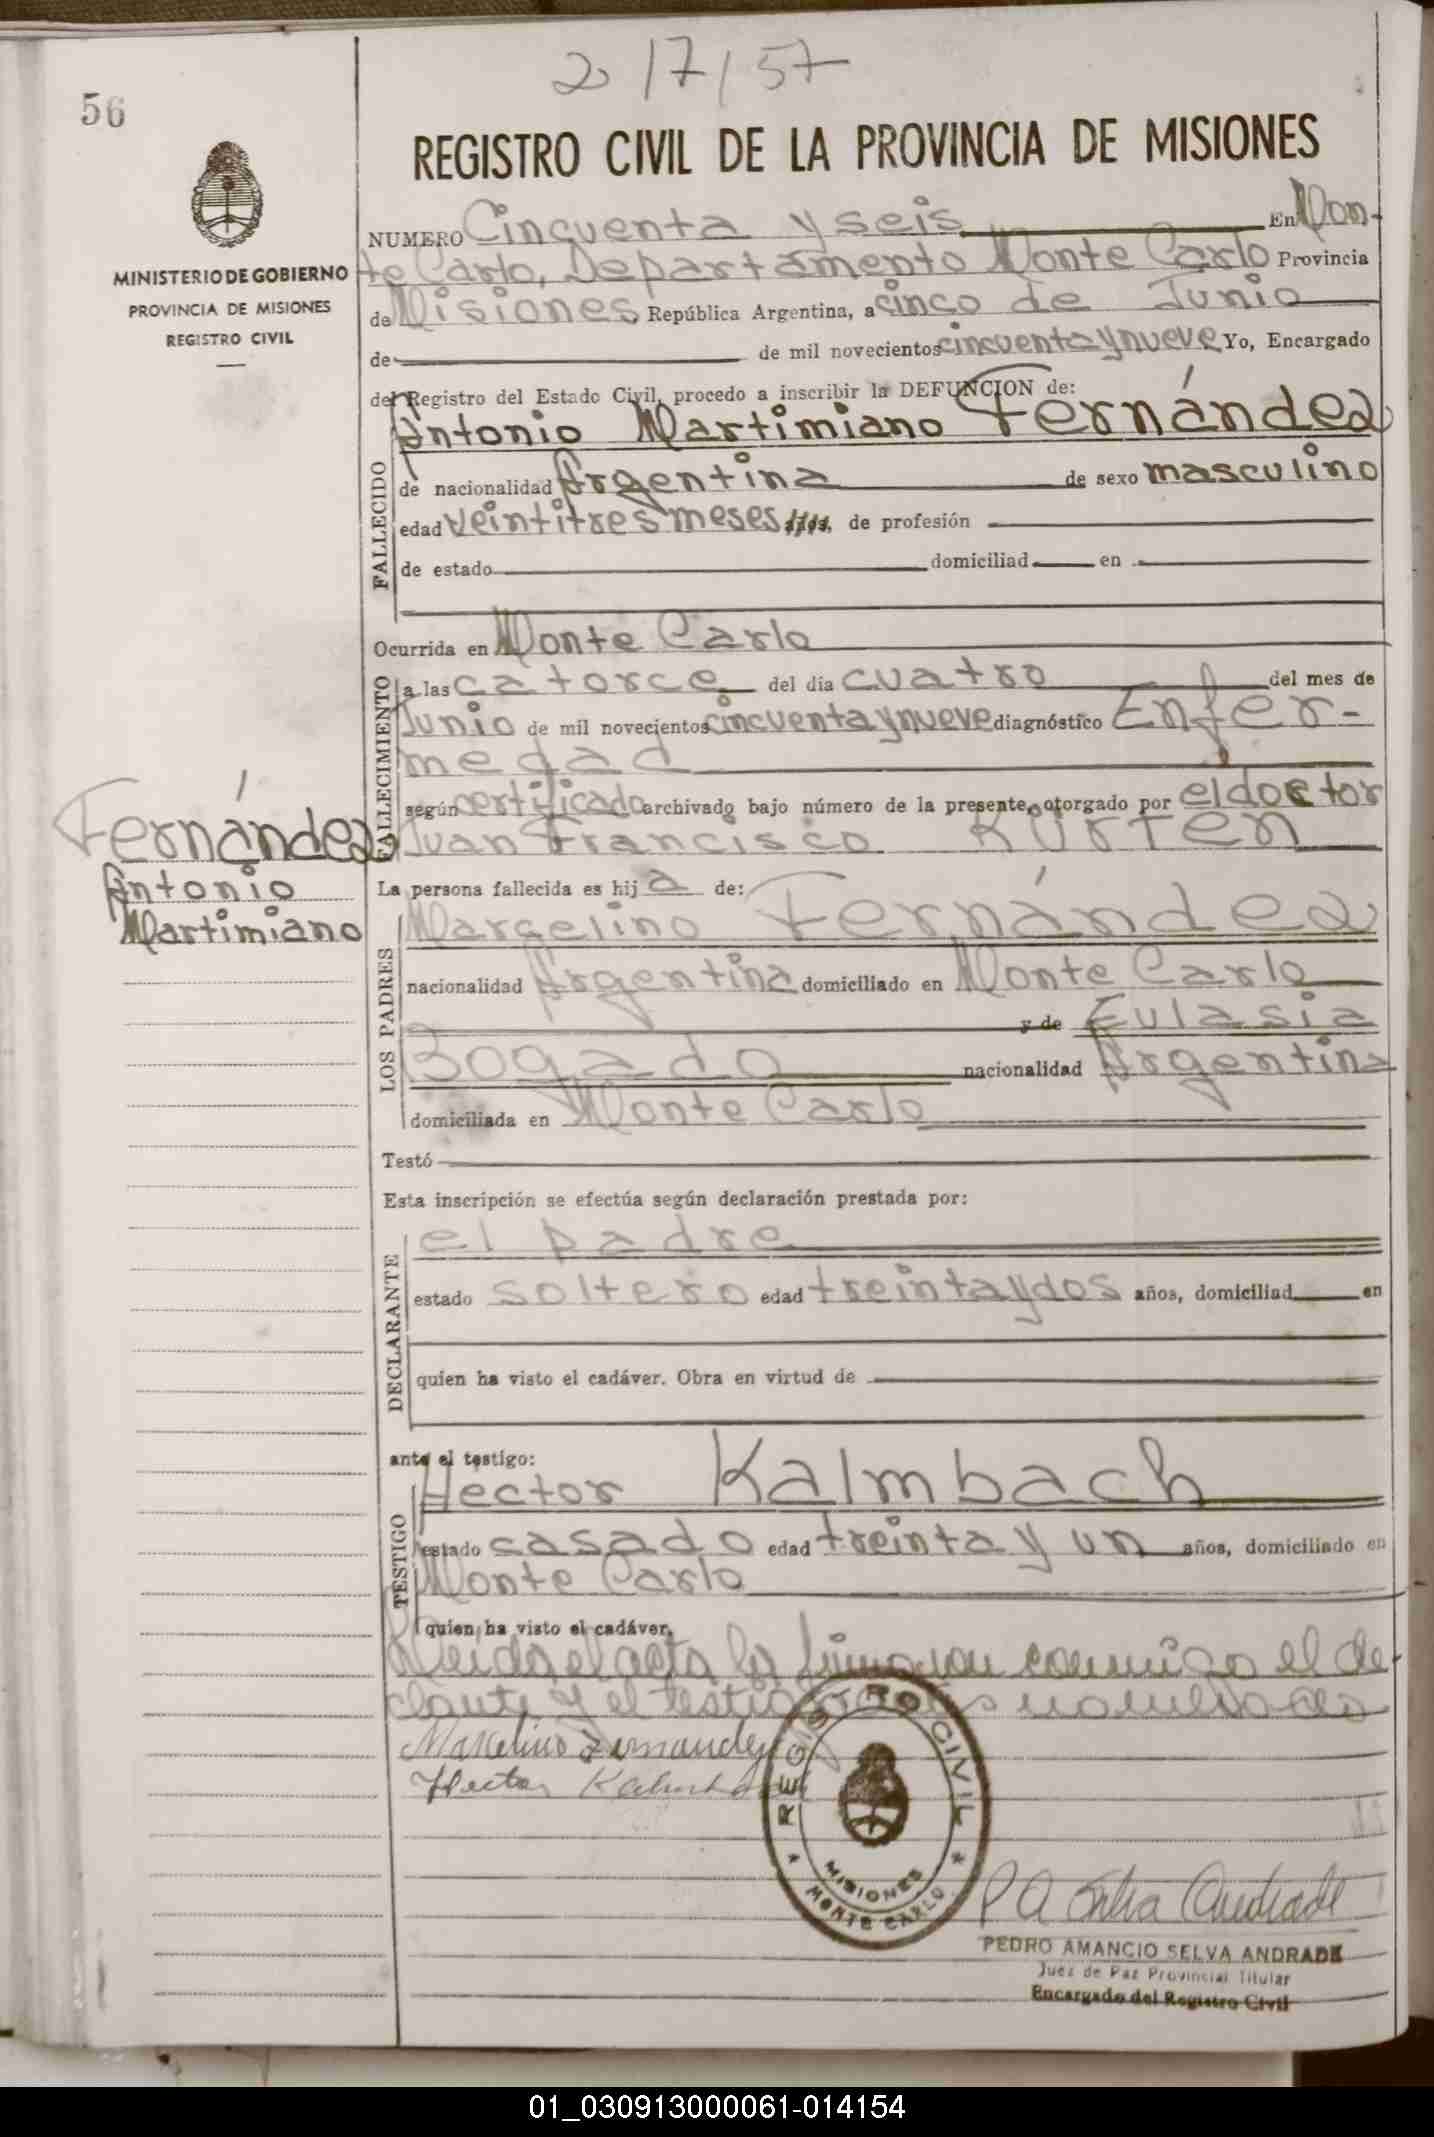 2/7/57
56
REGISTRO CIVIL DE LA PROVINCIA DE MISIONES
MINISTERIO DE GOBIERNO
PROVINCIA DE MISIONES
REGISTRO CIVIL
NUMERO Cincuenta y seis En Mon-
te Carlo, Departamento Monte Carlo Provincia
de Misiones República Argentina, a cinco de Junio
de de mil novecientos cincuenta y nueve Yo, Encargado
del Registro del Estado Civil, procedo a inscribir la DEFUNCION de:
Antonio Martimiano Fernández
FALLECIDO
de nacionalidad Argentina de sexo masculino
edad veintitres meses años, de profesión
de estado domiciliad en
Ocurrida en Monte Carlo
FALLECIMIENTO
a las catorce del día cuatro del mes de
Junio de mil novecientos cincuenta y nueve diagnóstico Enfer-
medad
según certificado archivado bajo número de la presente, otorgado por el doctor
Juan Francisco KÜRTEN
Fernández
Antonio
Martimiano
La persona fallecida es hij a de:
Marcelino Fernández
LOS PADRES
nacionalidad Argentina domiciliado en Monte Carlo
y de Eulasia
Bogado nacionalidad Argentina
domiciliada en Monte Carlo
Testó
Esta inscripción se efectúa según declaración prestada por:
el padre
DECLARANTE
estado soltero edad treinta y dos años, domiciliad en
quien ha visto el cadáver. Obra en virtud de
ante el testigo:
Hector Kalmbach
TESTIGO
estado casado edad treinta y un años, domiciliado en
Monte Carlo
quien ha visto el cadáver.
Leida el acta la firmaron conmigo el de-
clante y el testigo nombrados
Marcelino Fernandez
Hector Kalmbach
REGISTRO CIVIL
MISIONES
MONTE CARLO
P A Selva Andrade
PEDRO AMANCIO SELVA ANDRADE
Juez de Paz Provincial Titular
Encargado del Registro Civil
01_030913000061-014154